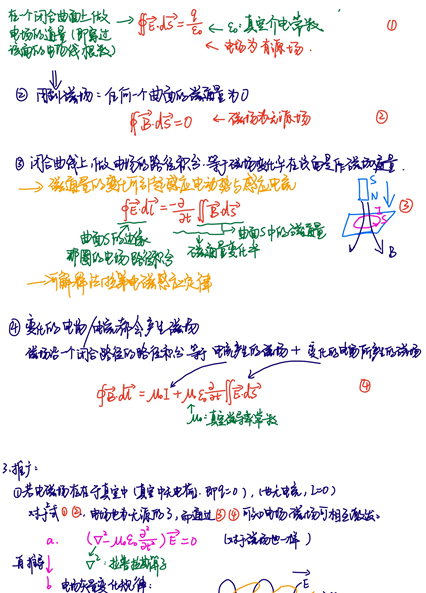 在一个闭合曲面上做
电场的通量(即穿过
该面的电场线根数)
∯E·dS = q/ε₀ ← ε₀:真空介电常数 ①
← 电场为有源场.
② 闭合磁场:任何一个曲面的磁通量为0
∯B·dS = 0 ← 磁场为无源场 ②
③ 闭合曲线上做电场的路径积分.等于磁场变化率在该面是所磁场通量.
→ 磁通量的变化所引起感应电动势与感应电流
∮E·dl = -∂/∂t ∬B·dS ③
曲面S的边缘
那圈的电场路径积分
磁通量变化率
曲面S中的磁通量
S
N
I
S
B
→ 可解释法拉第电磁感应定律
④ 变化的电场/电流都会产生磁场
磁场沿一个闭合路径的路径积分等于 电流产生的磁场 + 变化的电场所产生的磁场
∮B·dl = μ₀I + μ₀ε₀ ∂/∂t ∬E·dS ④
μ₀:真空磁导率常数
3.推广:
①若电磁场存在于真空中(真空中无电荷.即q=0),(也无电流,I=0)
对于式①②,电场也为无源场了,而通过③④可知电场磁场可相互激发.
a. (∇²-μ₀ε₀ ∂²/∂t²)E = 0 (对于磁场也一样)
∇²:拉普拉斯算子
b 电场矢量变化规律:
E